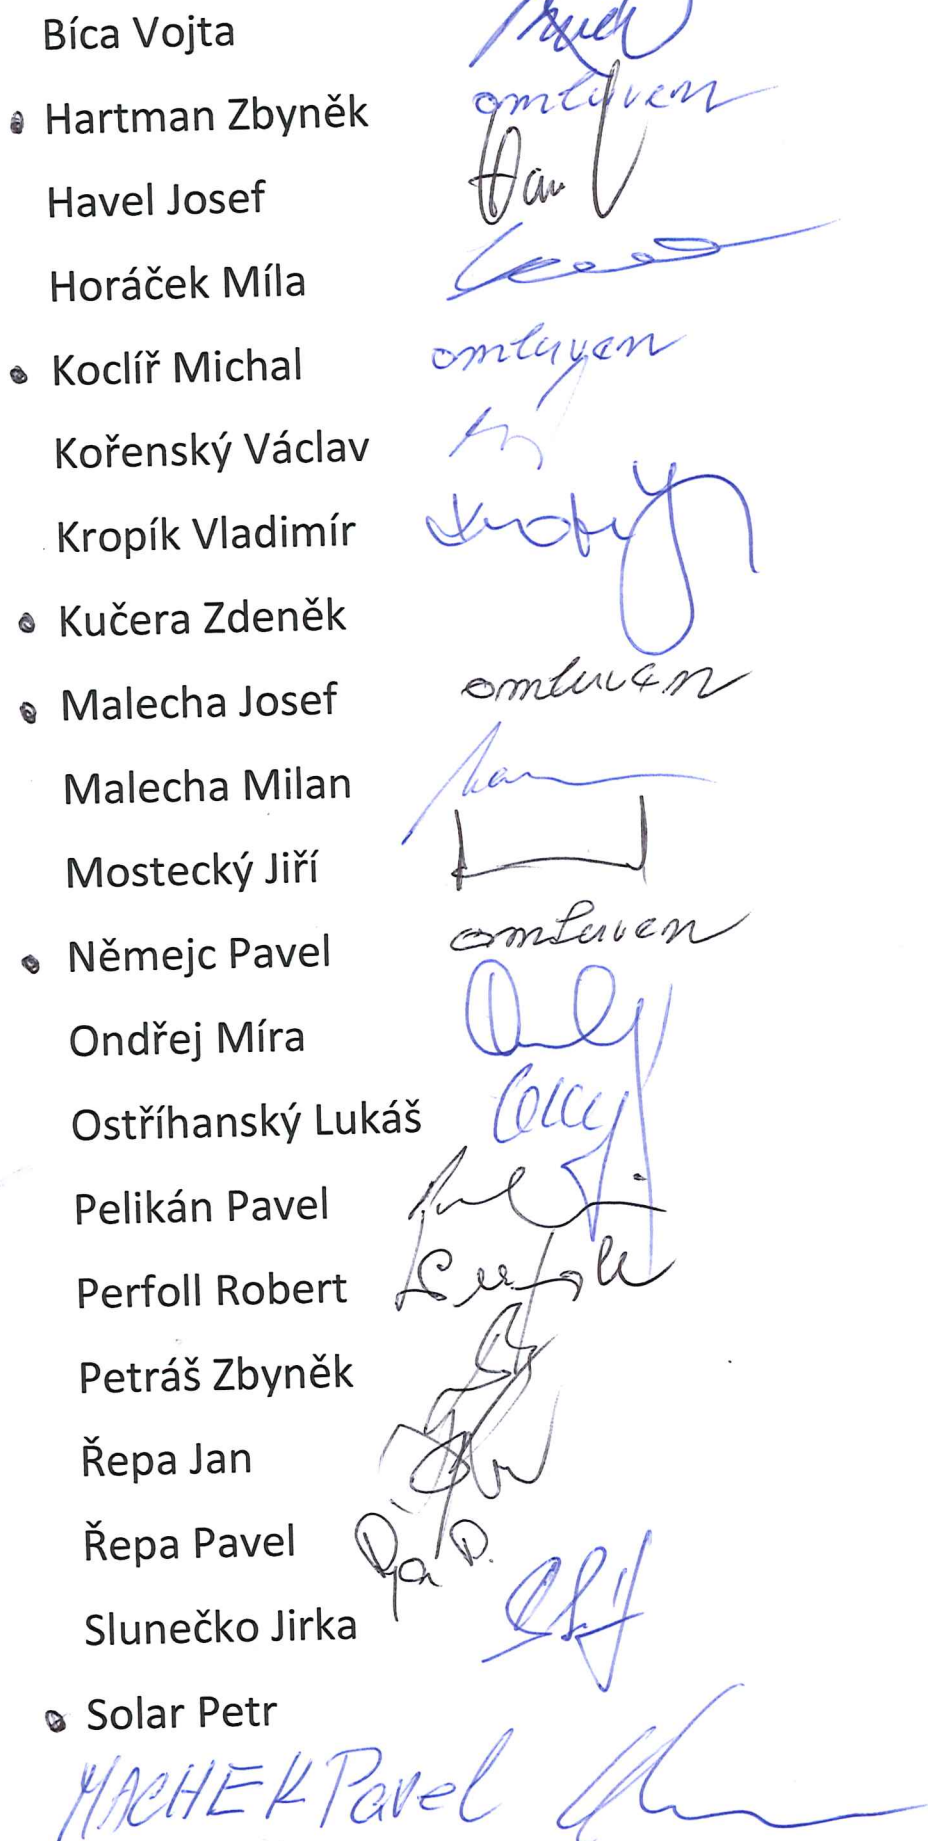 Bíca Vojta
Hartman Zbyněk omluven
Havel Josef
Horáček Míla
Koclíř Michal omluven
Kořenský Václav
Kropík Vladimír
Kučera Zdeněk
Malecha Josef omluven
Malecha Milan
Mostecký Jiří
Němejc Pavel omluven
Ondřej Míra
Ostříhanský Lukáš
Pelikán Pavel
Perfoll Robert Perfoll
Petráš Zbyněk
Řepa Jan
Řepa Pavel
Slunečko Jirka
Solar Petr
MACHEK Pavel